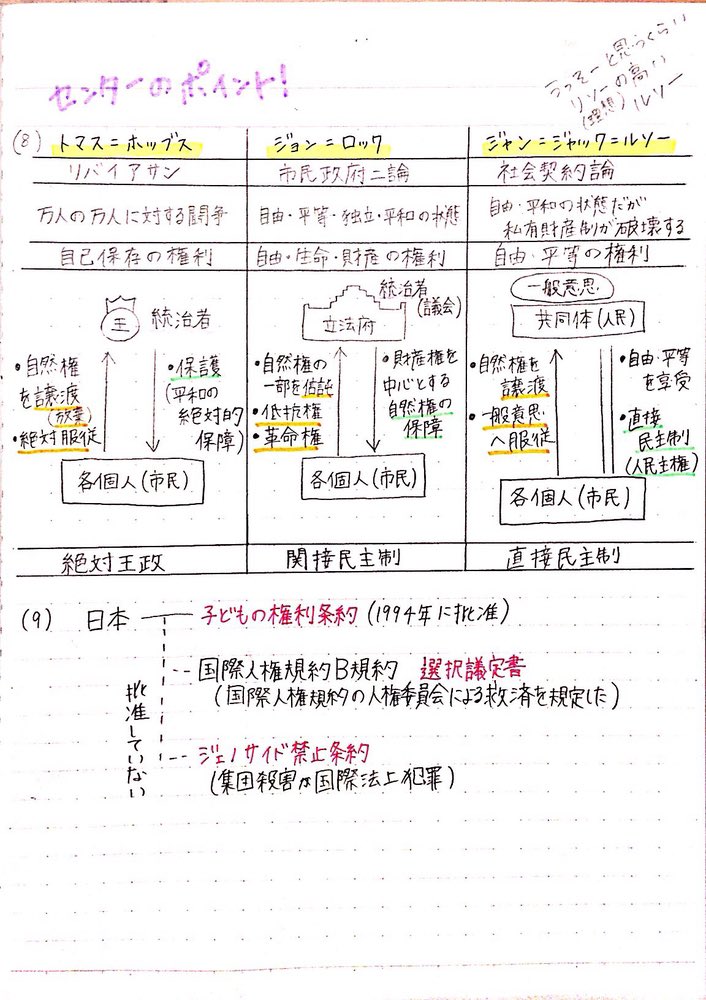 センターのポイント!
うっそーと思うくらい
リソーの高い
(理想)
ルソー
(8) トマス=ホッブス
ジョン=ロック
ジャン=ジャック=ルソー
リバイアサン
市民政府二論
社会契約論
万人の万人に対する闘争
自由・平等・独立・平和の状態
自由・平和の状態だが
私有財産制が破壊する
自己保存の権利
自由・生命・財産の権利
自由・平等の権利
王
統治者
・自然権
を譲渡
(放棄)
・絶対服従
・保護
(平和の
絶対的
保障)
各個人(市民)
統治者
(議会)
立法府
・自然権の
一部を信託
・低抗権
・革命権
・財産権を
中心とする
自然権の
保障
各個人(市民)
一般意思
共同体(人民)
・自然権を
譲渡
・一般意思
へ服従
・自由・平等
を享受
・直接
民主制
(人民主権)
各個人(市民)
絶対王政
関接民主制
直接民主制
(9) 日本
子どもの権利条約(1994年に批准)
国際人権規約B規約 選択議定書
(国際人権規約の人権委員会による救済を規定した)
批准していない
ジェノサイド禁止条約
(集団殺害が国際法上犯罪)